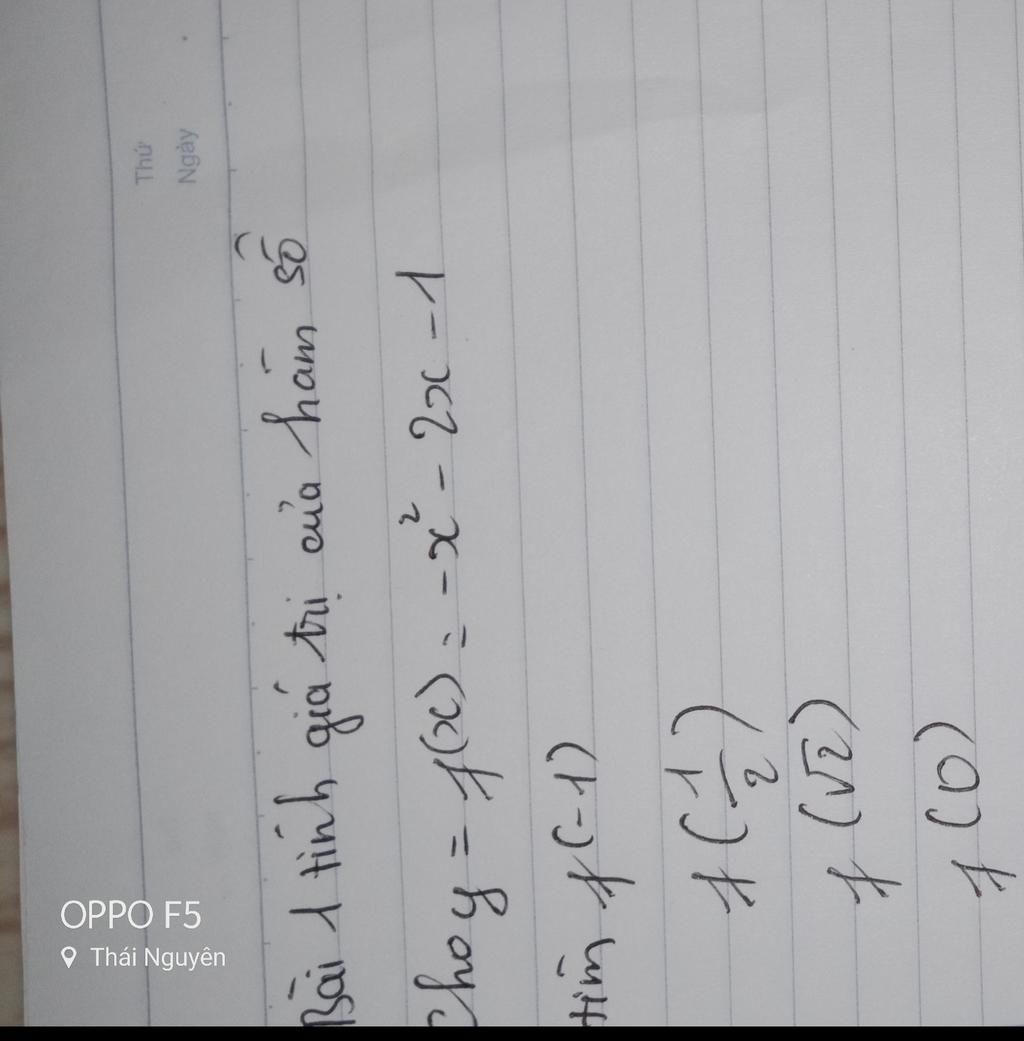 Thứ
Ngày
Bài 1 tính giá trị của hàm số
Cho y = f(x) = -x² - 2x - 1
tìm f(-1)
f(1/2)
f(√2)
f(0)
OPPO F5
Thái Nguyên